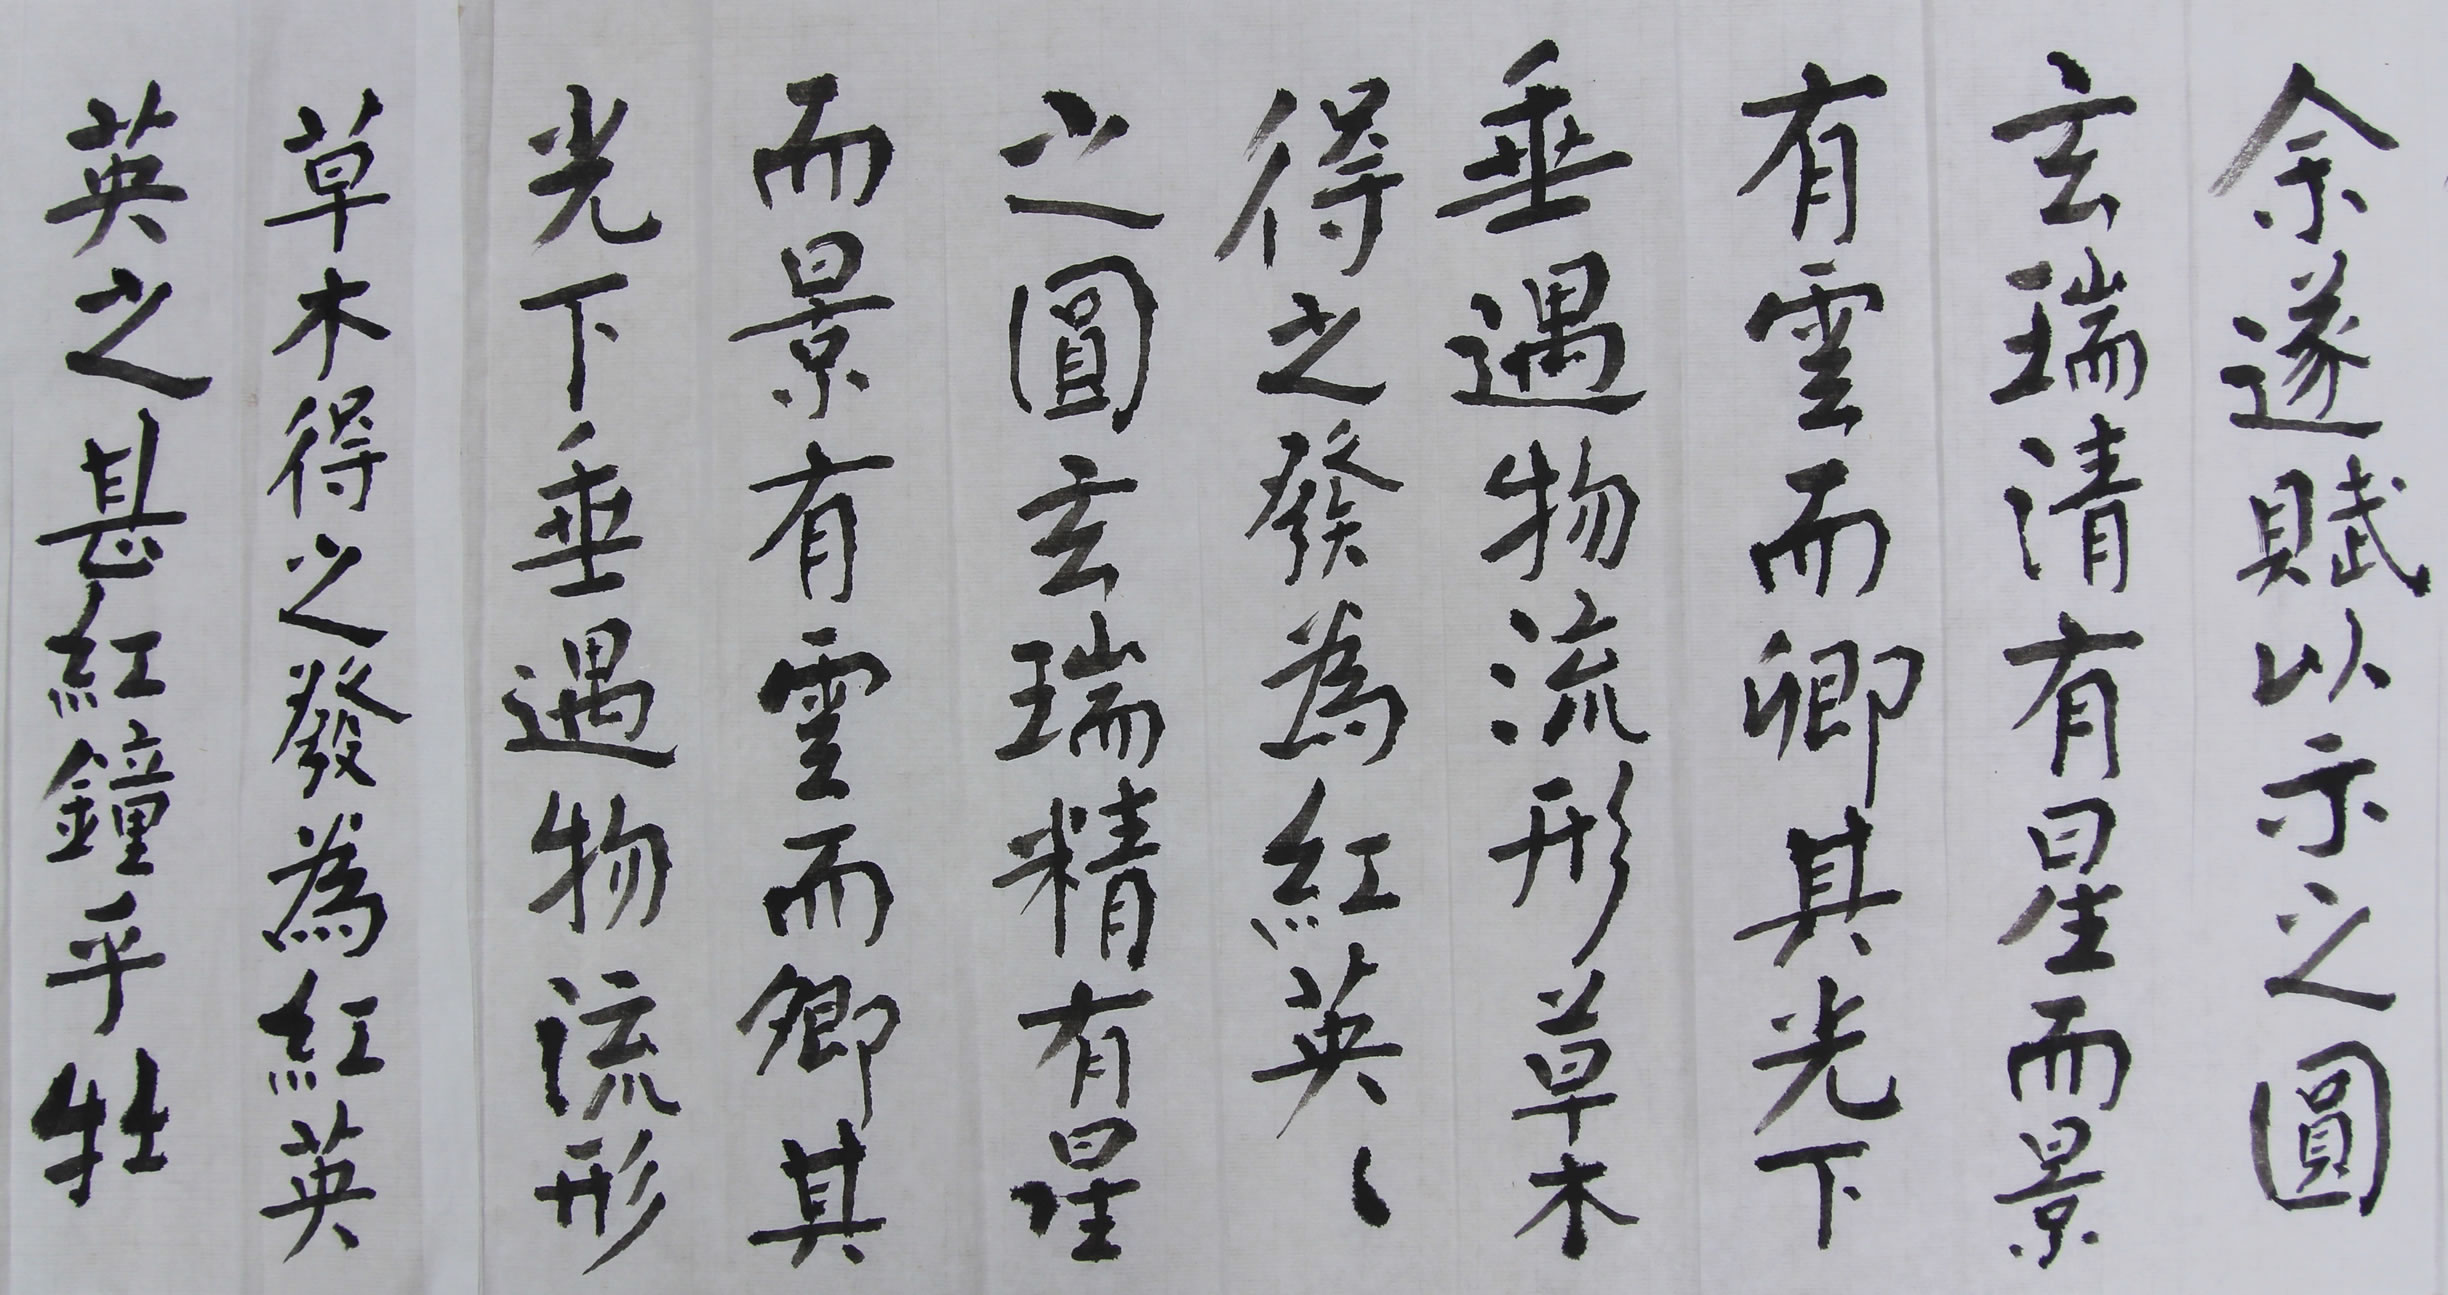 余遂賦以示之圓
玄瑞清有星而景
有雲而卿其光下
垂遇物流形草木
得之發為紅英〻
之圓玄瑞精有星
而景有雲而卿其
光下垂遇物流形
草木得之發為紅英
英之甚紅鐘乎牡